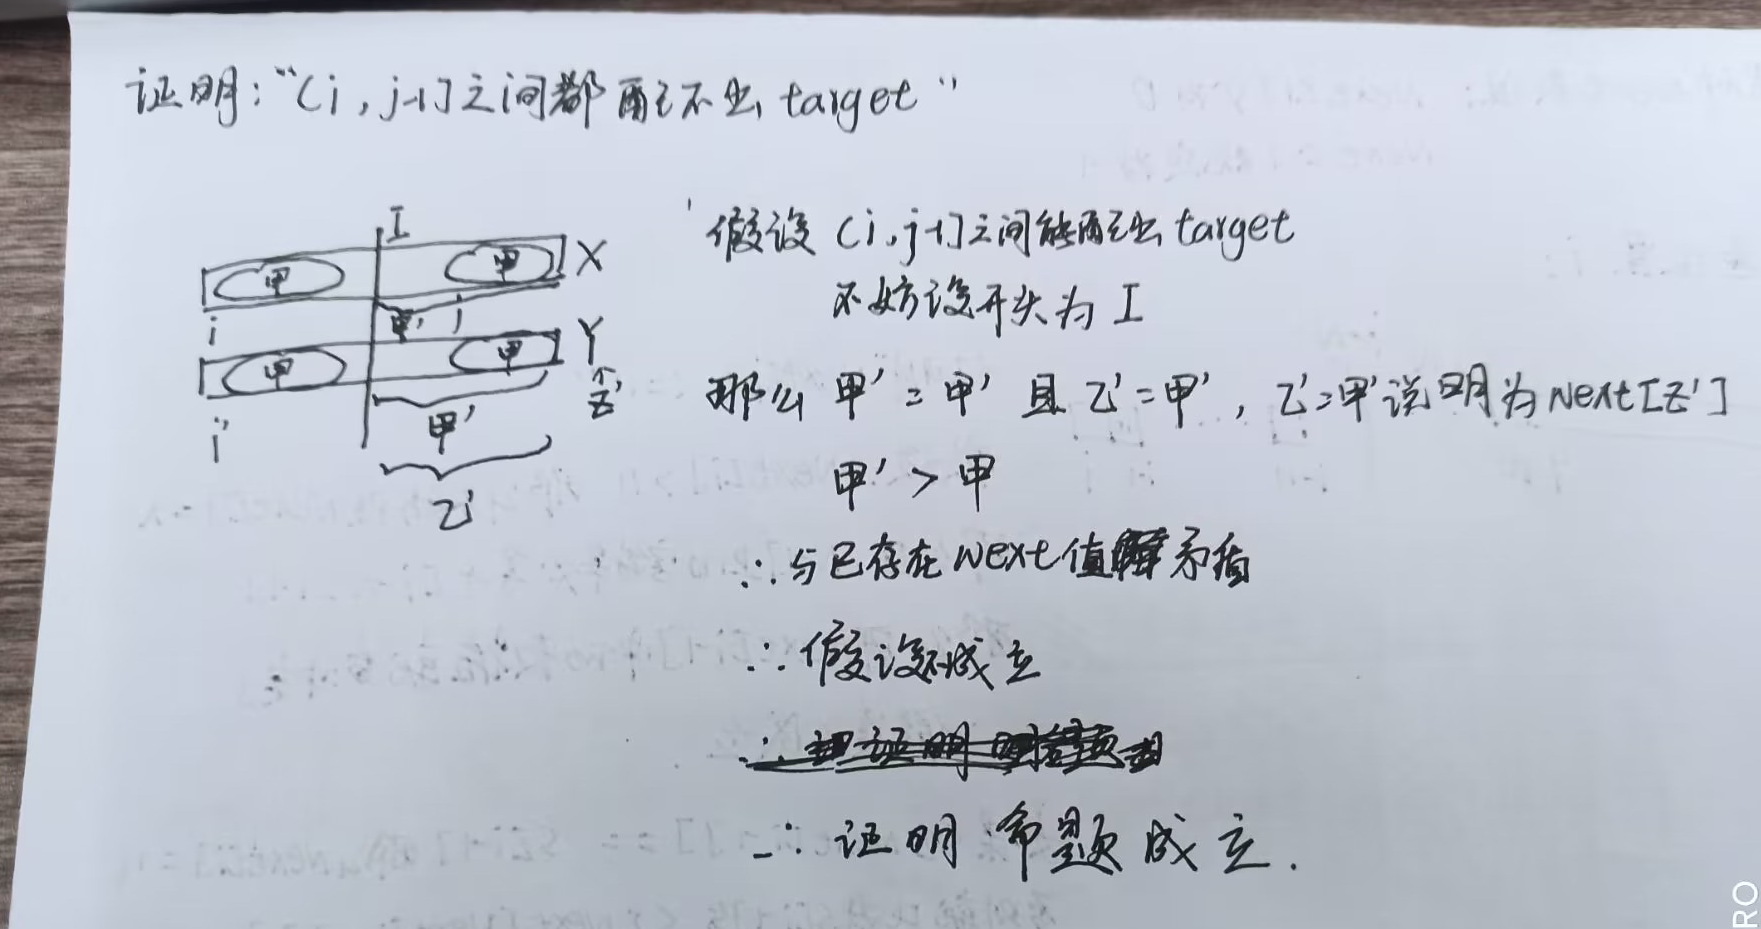 证明："(i, j-1]之间都配不出target"
I
甲 甲 X
i 甲' j
甲 甲 Y
i' 甲' Z'
Z'
假设(i, j-1]之间能配出target
不妨设开头为I
那么 甲'=甲' 且 Z'=甲', Z'=甲'说明为Next[Z']
甲'>甲
∴与已存在Next值矛盾
∴假设不成立
∴证明命题成立.
RO